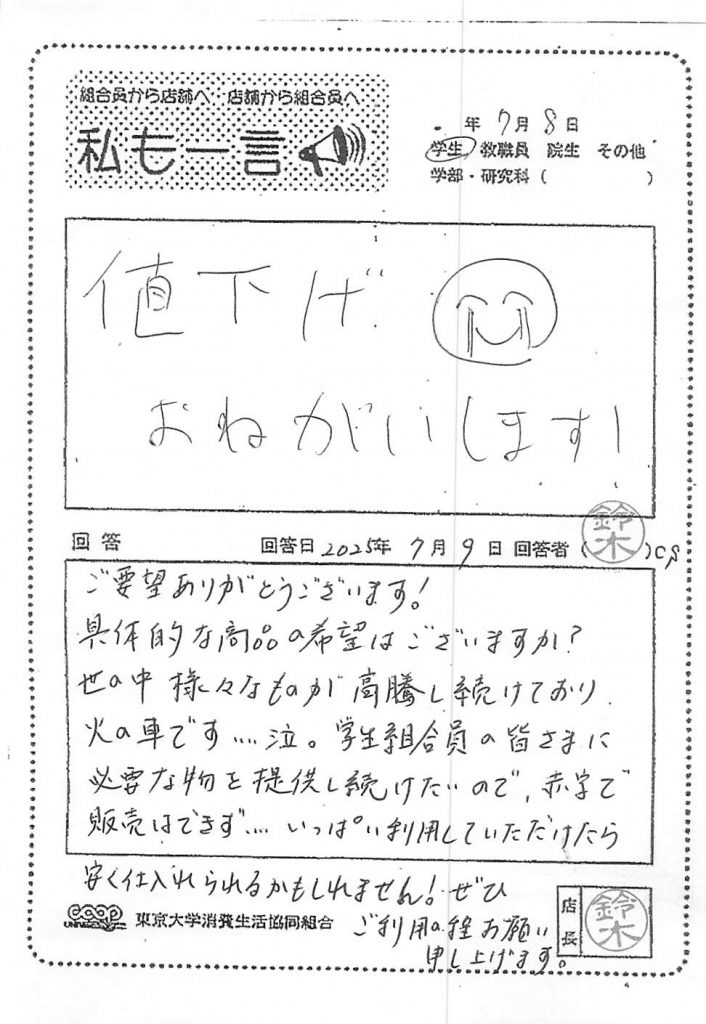 組合員から店舗へ…店舗から組合員へ
私も一言
年 7月 8日
学生 教職員 院生 その他
学部・研究科（ ）
値下げ
おねがいします!
回答 回答日 2025年 7月 9日 回答者（鈴木）CS
ご要望ありがとうございます!
具体的な商品の希望はございますか?
世の中 様々なものが 高騰し続けており
火の車です....泣。学生組合員の皆さまに
必要な物を提供し続けたいので、赤字で
販売はできず.... いっぱい利用していただけたら
安く仕入れられるかもしれません! ぜひ
ご利用の程お願い
申し上げます。
coop 東京大学消費生活協同組合
店長 鈴木